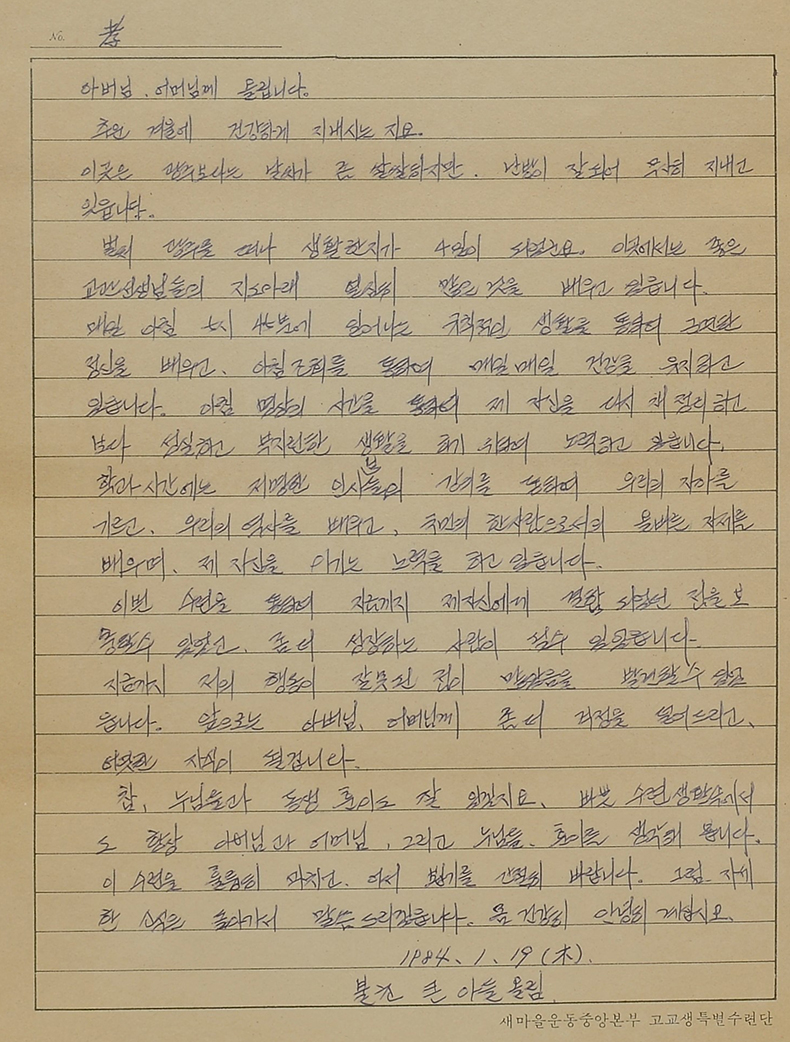 No. 孝
아버님, 어머님께 드립니다.
추운 겨울에 건강하게 지내시는 지요.
이곳은 광주보다는 날씨가 좀 쌀쌀하지만, 난방이 잘되어 무사히 지내고
있읍니다.
벌써 광주를 떠나 생활한지가 4일이 되었군요. 이곳에서는 좋은
교관선생님들의 지도아래 열심히 많은 것을 배우고 있읍니다.
매일 아침 5시 45분에 일어나는 규칙적인 생활을 통하여
정신을 배우고, 아침조회를 통하여 매일매일 건강을 유지하고
있읍니다. 아침 명상의 시간을 통하여 제 자신을 다시 재정리하고
보다 성실하고 부지런한 생활을 하기 위하여 노력하고 있읍니다.
학과시간에는 저명한 인사분들의 강의를 통하여 우리의 자아를
기르고, 우리의 역사를 배우고, 국민의 한사람으로서의 올바른 자세를
배우며, 제 자신을 이기는 노력을 하고 있읍니다.
이번 수련을 통하여 지금까지 제자신에게 결함 되었던 점을 보
충할수 있었고, 좀더 성장하는 사람이 될수 있겠읍니다.
지금까지 저의 행동이 잘못된 점이 많았음을 발견할 수 있었
읍니다. 앞으로는 아버님, 어머님께 좀더 걱정을 덜어드리고,
자식이 될겁니다.
참, 누님들과 동생 훈이도 잘 있겠지요. 바쁜 수련생활속에서
도 항상 아버님과 어머님, 그리고 누님들, 훈이를 생각해 봅니다.
이 수련을 훌륭히 마치고, 어서 뵙기를 간절히 바랍니다. 그럼 자세
한 소식은 돌아가서 말씀드리겠읍니다. 몸 건강히 안녕히 계십시요.
1984. 1. 19 (木).
불효 큰 아들 올림.
새마을운동중앙본부 고교생특별수련단